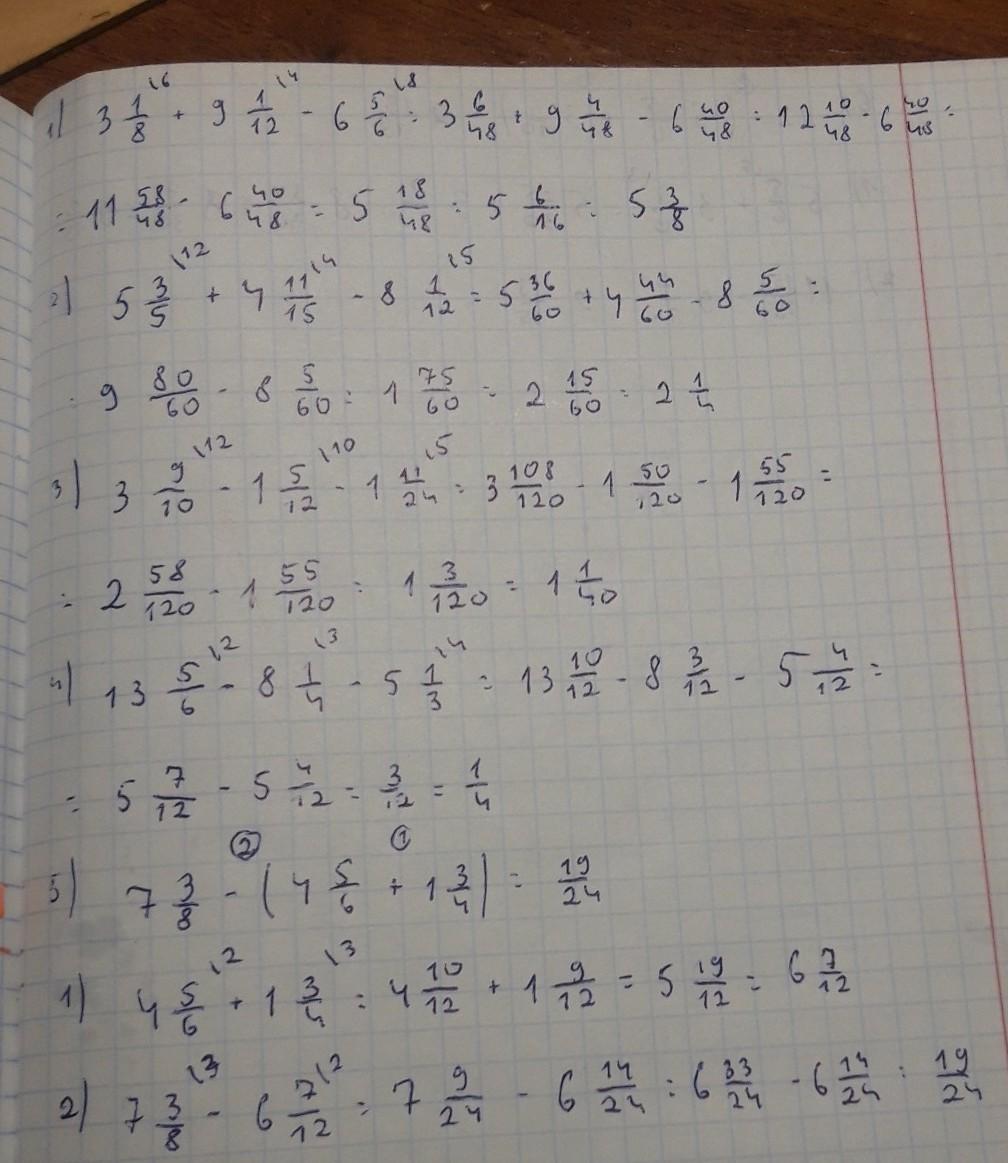 1) 3 1/8 \6 + 9 1/12 \4 - 6 5/6 \8 = 3 6/48 + 9 4/48 - 6 40/48 = 12 10/48 - 6 40/48 =
= 11 58/48 - 6 40/48 = 5 18/48 = 5 6/16 = 5 3/8
2) 5 3/5 \12 + 4 11/15 \4 - 8 1/12 \5 = 5 36/60 + 4 44/60 - 8 5/60 =
= 9 80/60 - 8 5/60 = 1 75/60 = 2 15/60 = 2 1/4
3) 3 9/10 \12 - 1 5/12 \10 - 1 11/24 \5 = 3 108/120 - 1 50/120 - 1 55/120 =
= 2 58/120 - 1 55/120 = 1 3/120 = 1 1/40
4) 13 5/6 \2 - 8 1/4 \3 - 5 1/3 \4 = 13 10/12 - 8 3/12 - 5 4/12 =
= 5 7/12 - 5 4/12 = 3/12 = 1/4
② ①
5) 7 3/8 - (4 5/6 + 1 3/4) = 19/24
1) 4 5/6 \2 + 1 3/4 \3 = 4 10/12 + 1 9/12 = 5 19/12 = 6 7/12
2) 7 3/8 \3 - 6 7/12 \2 = 7 9/24 - 6 14/24 = 6 33/24 - 6 14/24 = 19/24